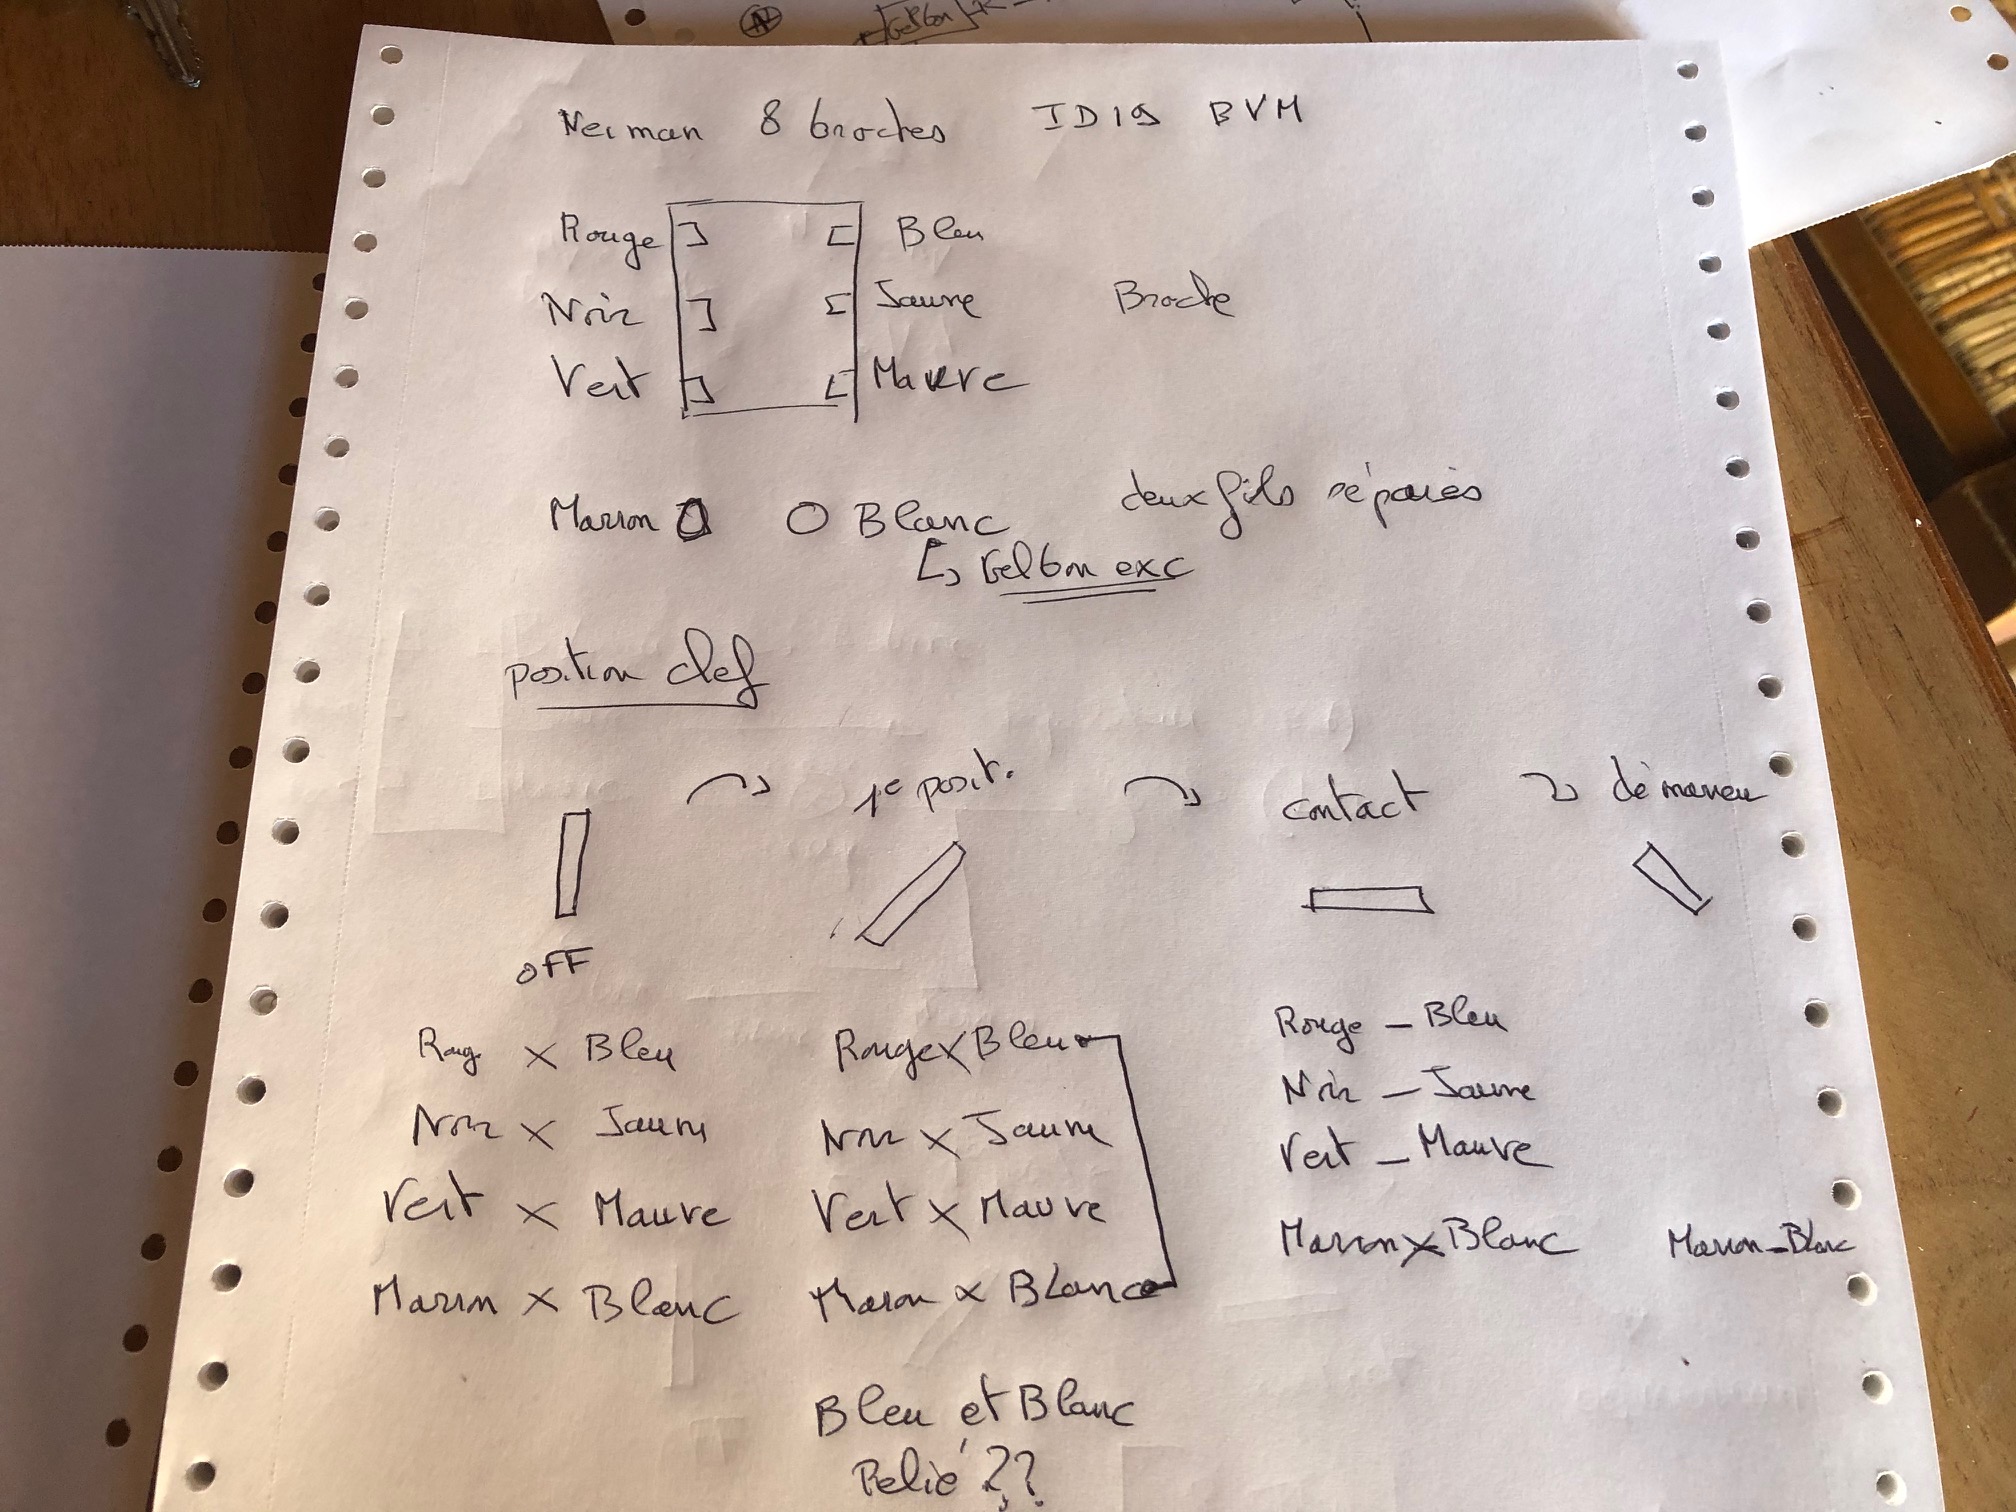 Neiman 8 broches ID19 BVM
Rouge Bleu
Noir Jaune Broche
Vert Mauve
Marron Blanc deux fils séparés
position clef
1e posit. contact
OFF
Roug x Bleu Rouge x Bleu Rouge - Bleu
Noir x Jaune Noir x Jaune Noir - Jaune
Vert x Mauve Vert x Mauve Vert - Mauve
Marron x Blanc Marron x Blanc Marron x Blanc Marron - Blanc
Bleu et Blanc
Relié ??